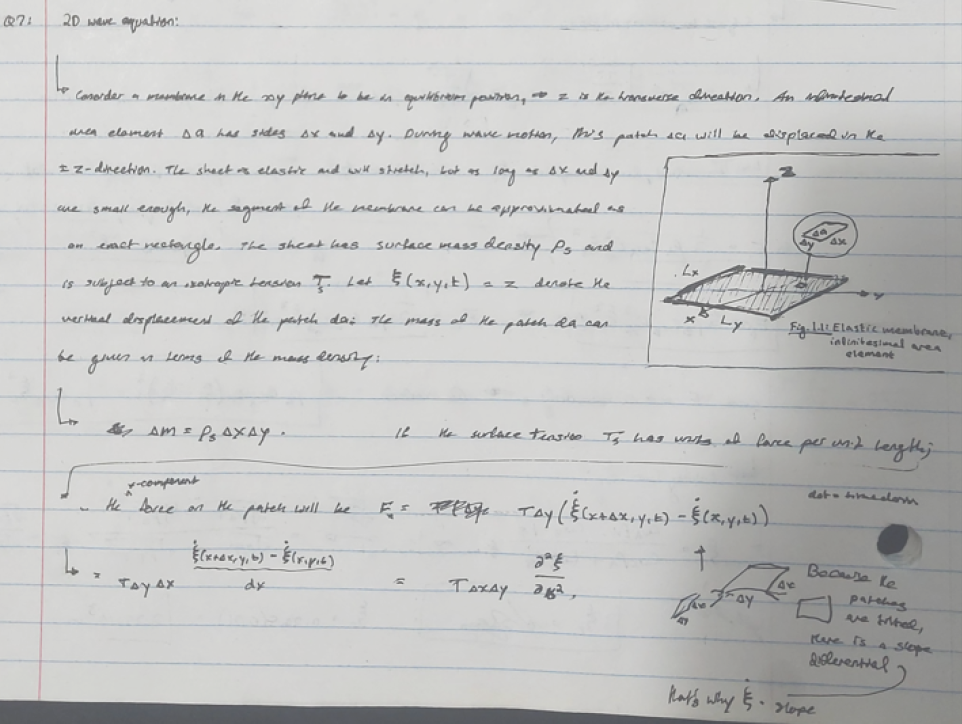 Q7: 2D wave equation:
Consider a membrane in the xy plane to be in equilibrium position, z is the transverse direction. An infinitesimal
area element Δa has sides Δx and Δy. During wave motion, this patch Δa will be displaced in the
± z-direction. The sheet is elastic and will stretch, but as long as Δx and Δy
are small enough, the segment of the membrane can be approximated as
an exact rectangle. The sheet has surface mass density ρs and
is subject to an isotropic tension Ts. Let ξ(x,y,t) = z denote the
vertical displacement of the patch da: The mass of the patch da can
be given in terms of the mass density:
z
Δa
Δy Δx
Lx
y
x
Ly
Fig 1.1: Elastic membrane,
infinitesimal area
element
Δm = ρs Δx Δy. If the surface tension Ts has units of force per unit length;
-component
the force on the patch will be F = TΔy(ξ̇(x+Δx,y,t) - ξ̇(x,y,t))
= TΔyΔx (ξ̇(x+Δx,y,t) - ξ̇(x,y,t))/dx = TΔxΔy
Δx
Δy
Because the
patches
are tilted,
there is a slope
differential
that's why ξ̇ - slope